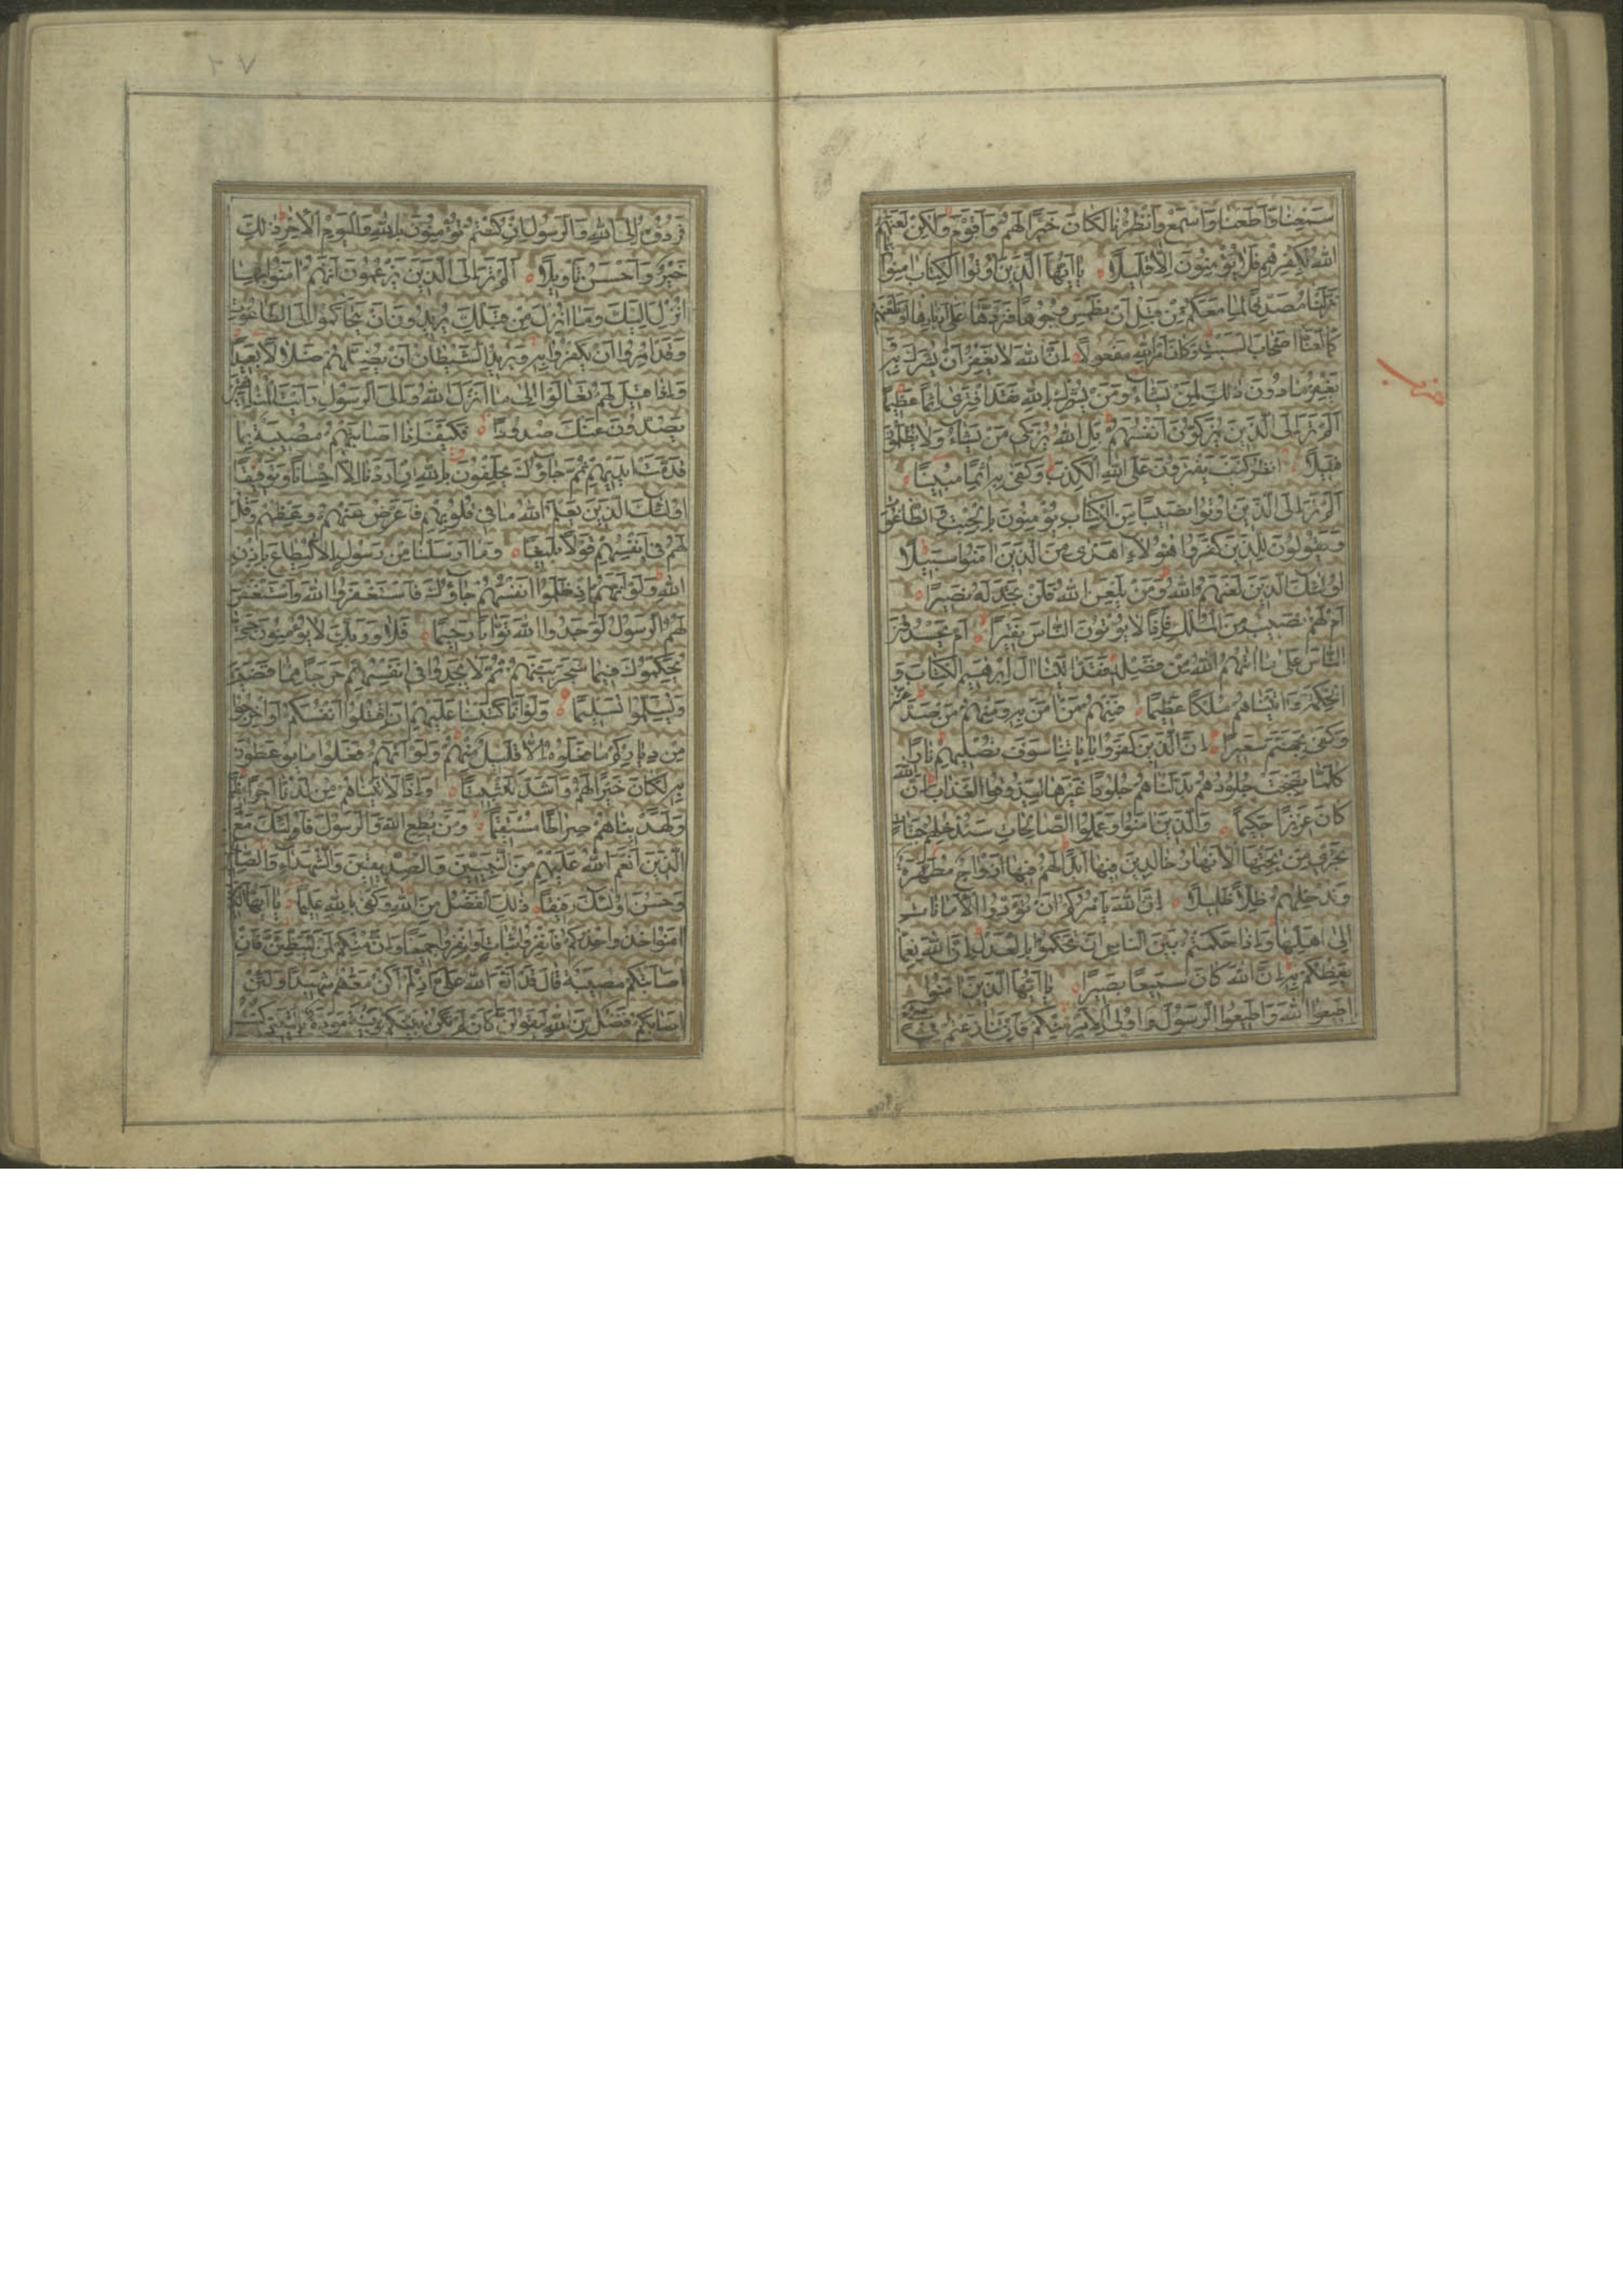 سَمِعْنا وَاَطَعْنا وَاسْمَعْ وَانْظُرْنا لَكانَ خَيْرًا لَهُمْ وَاَقْوَمَ وَلٰكِنْ لَعَنَهُمُ
اللهُ بِكُفْرِهِمْ فَلا يُؤْمِنُونَ اِلّا قَليلًا يا اَيُّهَا الَّذينَ اُوتُوا الْكِتابَ امِنُوا بِما
نَزَّلْنا مُصَدِّقًا لِما مَعَكُمْ مِنْ قَبْلِ اَنْ نَطْمِسَ وُجُوهًا فَنَرُدَّها عَلى اَدْبارِها اَوْ نَلْعَنَهُمْ
كَما لَعَنّا اَصْحابَ السَّبْتِ وَكانَ اَمْرُ اللهِ مَفْعُولًا اِنَّ اللهَ لا يَغْفِرُ اَنْ يُشْرَكَ بِهِ وَ
يَغْفِرُ ما دُونَ ذٰلِكَ لِمَنْ يَشاءُ وَمَنْ يُشْرِكْ بِاللهِ فَقَدِ افْتَرى اِثْمًا عَظيمًا
اَلَمْ تَرَ اِلَى الَّذينَ يُزَكُّونَ اَنْفُسَهُمْ بَلِ اللهُ يُزَكّي مَنْ يَشاءُ وَلا يُظْلَمُونَ
فَتيلًا اُنْظُرْ كَيْفَ يَفْتَرُونَ عَلَى اللهِ الْكَذِبَ وَكَفى بِهِ اِثْمًا مُبينًا
اَلَمْ تَرَ اِلَى الَّذينَ اُوتُوا نَصيبًا مِنَ الْكِتابِ يُؤْمِنُونَ بِالْجِبْتِ وَالطّاغُوتِ
وَيَقُولُونَ لِلَّذينَ كَفَرُوا هٰؤُلاءِ اَهْدى مِنَ الَّذينَ امَنُوا سَبيلًا
اُولٰئِكَ الَّذينَ لَعَنَهُمُ اللهُ وَمَنْ يَلْعَنِ اللهُ فَلَنْ تَجِدَ لَهُ نَصيرًا
اَمْ لَهُمْ نَصيبٌ مِنَ الْمُلْكِ فَاِذًا لا يُؤْتُونَ النّاسَ نَقيرًا اَمْ يَحْسُدُونَ
النّاسَ عَلى ما اتيهُمُ اللهُ مِنْ فَضْلِهِ فَقَدْ اتَيْنا الَ اِبْرهيمَ الْكِتابَ وَ
الْحِكْمَةَ وَاتَيْناهُمْ مُلْكًا عَظيمًا فَمِنْهُمْ مَنْ امَنَ بِهِ وَمِنْهُمْ مَنْ صَدَّ عَنْهُ
وَكَفى بِجَهَنَّمَ سَعيرًا اِنَّ الَّذينَ كَفَرُوا بِاياتِنا سَوْفَ نُصْليهِمْ نارًا
كُلَّما نَضِجَتْ جُلُودُهُمْ بَدَّلْناهُمْ جُلُودًا غَيْرَها لِيَذُوقُوا الْعَذابَ اِنَّ اللهَ
كانَ عَزيزًا حَكيمًا وَالَّذينَ امَنُوا وَعَمِلُوا الصّالِحاتِ سَنُدْخِلُهُمْ جَنّاتٍ
تَجْري مِنْ تَحْتِهَا الْاَنْهارُ خالِدينَ فيها اَبَدًا لَهُمْ فيها اَزْواجٌ مُطَهَّرَةٌ
وَنُدْخِلُهُمْ ظِلًّا ظَليلًا اِنَّ اللهَ يَأْمُرُكُمْ اَنْ تُؤَدُّوا الْاَماناتِ
اِلى اَهْلِها وَاِذا حَكَمْتُمْ بَيْنَ النّاسِ اَنْ تَحْكُمُوا بِالْعَدْلِ اِنَّ اللهَ نِعِمّا
يَعِظُكُمْ بِهِ اِنَّ اللهَ كانَ سَميعًا بَصيرًا يا اَيُّهَا الَّذينَ امَنُوا
اَطيعُوا اللهَ وَاَطيعُوا الرَّسُولَ وَاُولِي الْاَمْرِ مِنْكُمْ فَاِنْ تَنازَعْتُمْ في شَيْءٍ
حزب
فَرُدُّوهُ اِلَى اللهِ وَالرَّسُولِ اِنْ كُنْتُمْ تُؤْمِنُونَ بِاللهِ وَالْيَوْمِ الْاخِرِ ذٰلِكَ
خَيْرٌ وَاَحْسَنُ تَأْويلًا اَلَمْ تَرَ اِلَى الَّذينَ يَزْعُمُونَ اَنَّهُمْ امَنُوا بِما
اُنْزِلَ اِلَيْكَ وَما اُنْزِلَ مِنْ قَبْلِكَ يُريدُونَ اَنْ يَتَحاكَمُوا اِلَى الطّاغُوتِ
وَقَدْ اُمِرُوا اَنْ يَكْفُرُوا بِهِ وَيُريدُ الشَّيْطانُ اَنْ يُضِلَّهُمْ ضَلالًا بَعيدًا
وَاِذا قيلَ لَهُمْ تَعالَوْا اِلى ما اَنْزَلَ اللهُ وَاِلَى الرَّسُولِ رَاَيْتَ الْمُنافِقينَ
يَصُدُّونَ عَنْكَ صُدُودًا فَكَيْفَ اِذا اَصابَتْهُمْ مُصيبَةٌ بِما
قَدَّمَتْ اَيْديهِمْ ثُمَّ جاؤُكَ يَحْلِفُونَ بِاللهِ اِنْ اَرَدْنا اِلّا اِحْسانًا وَتَوْفيقًا
اُولٰئِكَ الَّذينَ يَعْلَمُ اللهُ ما في قُلُوبِهِمْ فَاَعْرِضْ عَنْهُمْ وَعِظْهُمْ وَقُلْ
لَهُمْ في اَنْفُسِهِمْ قَوْلًا بَليغًا وَما اَرْسَلْنا مِنْ رَسُولٍ اِلّا لِيُطاعَ بِاِذْنِ
اللهِ وَلَوْ اَنَّهُمْ اِذْ ظَلَمُوا اَنْفُسَهُمْ جاؤُكَ فَاسْتَغْفَرُوا اللهَ وَاسْتَغْفَرَ
لَهُمُ الرَّسُولُ لَوَجَدُوا اللهَ تَوّابًا رَحيمًا فَلا وَرَبِّكَ لا يُؤْمِنُونَ حَتّى
يُحَكِّمُوكَ فيما شَجَرَ بَيْنَهُمْ ثُمَّ لا يَجِدُوا في اَنْفُسِهِمْ حَرَجًا مِمّا قَضَيْتَ
وَيُسَلِّمُوا تَسْليمًا وَلَوْ اَنّا كَتَبْنا عَلَيْهِمْ اَنِ اقْتُلُوا اَنْفُسَكُمْ اَوِ اخْرُجُوا
مِنْ دِيارِكُمْ ما فَعَلُوهُ اِلّا قَليلٌ مِنْهُمْ وَلَوْ اَنَّهُمْ فَعَلُوا ما يُوعَظُونَ
بِهِ لَكانَ خَيْرًا لَهُمْ وَاَشَدَّ تَثْبيتًا وَاِذًا لَاتَيْناهُمْ مِنْ لَدُنّا اَجْرًا عَظيمًا
وَلَهَدَيْناهُمْ صِراطًا مُسْتَقيمًا وَمَنْ يُطِعِ اللهَ وَالرَّسُولَ فَاُولٰئِكَ مَعَ
الَّذينَ اَنْعَمَ اللهُ عَلَيْهِمْ مِنَ النَّبِيّينَ وَالصِّدّيقينَ وَالشُّهَداءِ وَالصّالِحينَ
وَحَسُنَ اُولٰئِكَ رَفيقًا ذٰلِكَ الْفَضْلُ مِنَ اللهِ وَكَفى بِاللهِ عَليمًا يا اَيُّهَا الَّذينَ
امَنُوا خُذُوا حِذْرَكُمْ فَانْفِرُوا ثُباتٍ اَوِ انْفِرُوا جَميعًا وَاِنَّ مِنْكُمْ لَمَنْ لَيُبَطِّئَنَّ فَاِنْ
اَصابَتْكُمْ مُصيبَةٌ قالَ قَدْ اَنْعَمَ اللهُ عَلَيَّ اِذْ لَمْ اَكُنْ مَعَهُمْ شَهيدًا وَلَئِنْ
اَصابَكُمْ فَضْلٌ مِنَ اللهِ لَيَقُولَنَّ كَاَنْ لَمْ تَكُنْ بَيْنَكُمْ وَبَيْنَهُ مَوَدَّةٌ يا لَيْتَني كُنْتُ